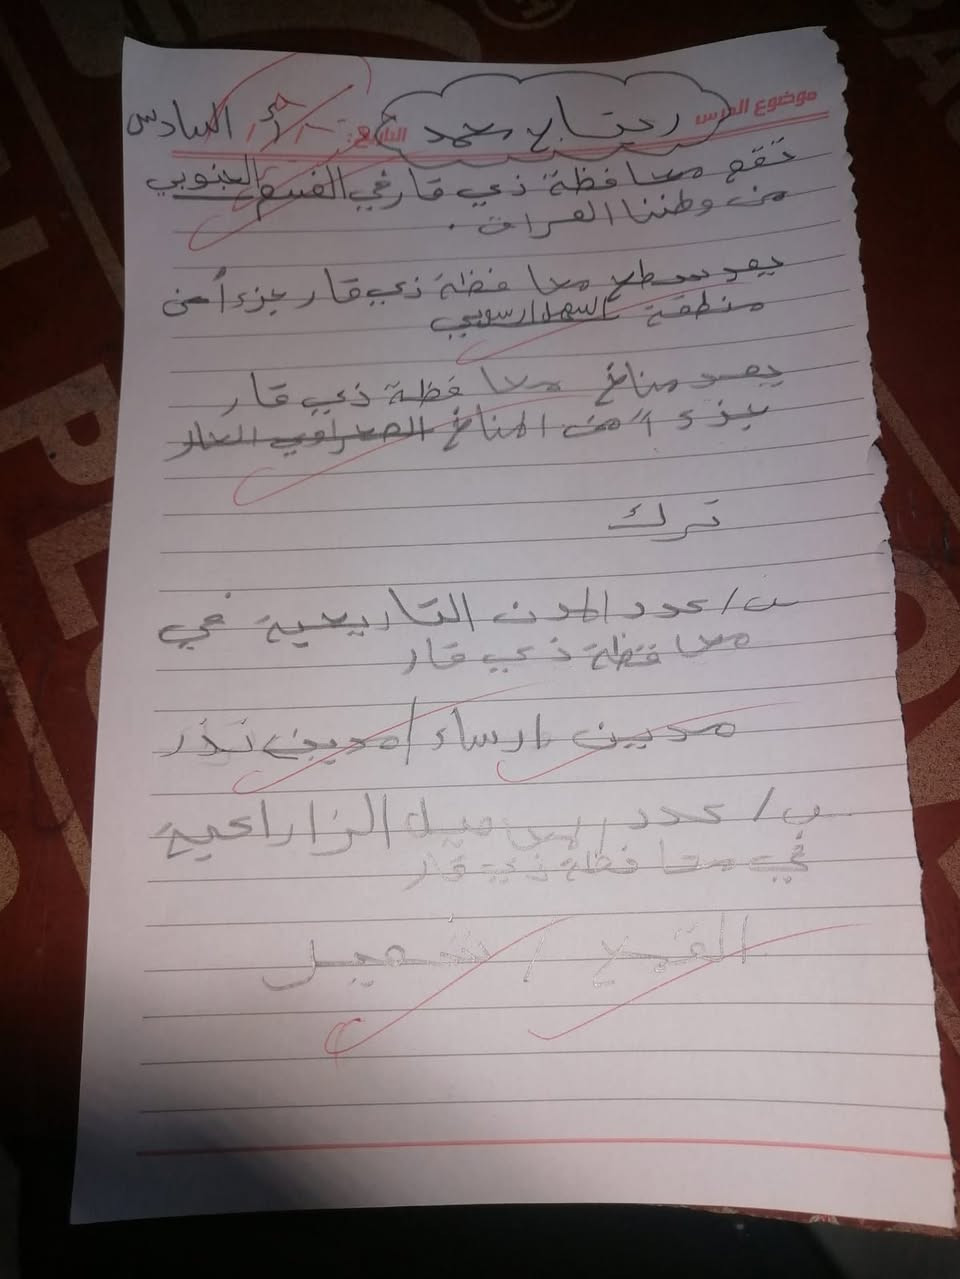 موضوع الدرس
التاريخ:
السادس
تقع محافظة ذي قار في القسم الجنوبي
من وطننا العراق.
يعد سطح محافظة ذي قار جزءاً من
منطقة السهل ارسوبي
يعد مناخ محافظة ذي قار
جزءاً من المناخ الصحراوي الحار
ترك
س/ عدد المدن التاريخية في
محافظة ذي قار
س/ عدد الزاراعية
في محافظة ذي قار
القمح /